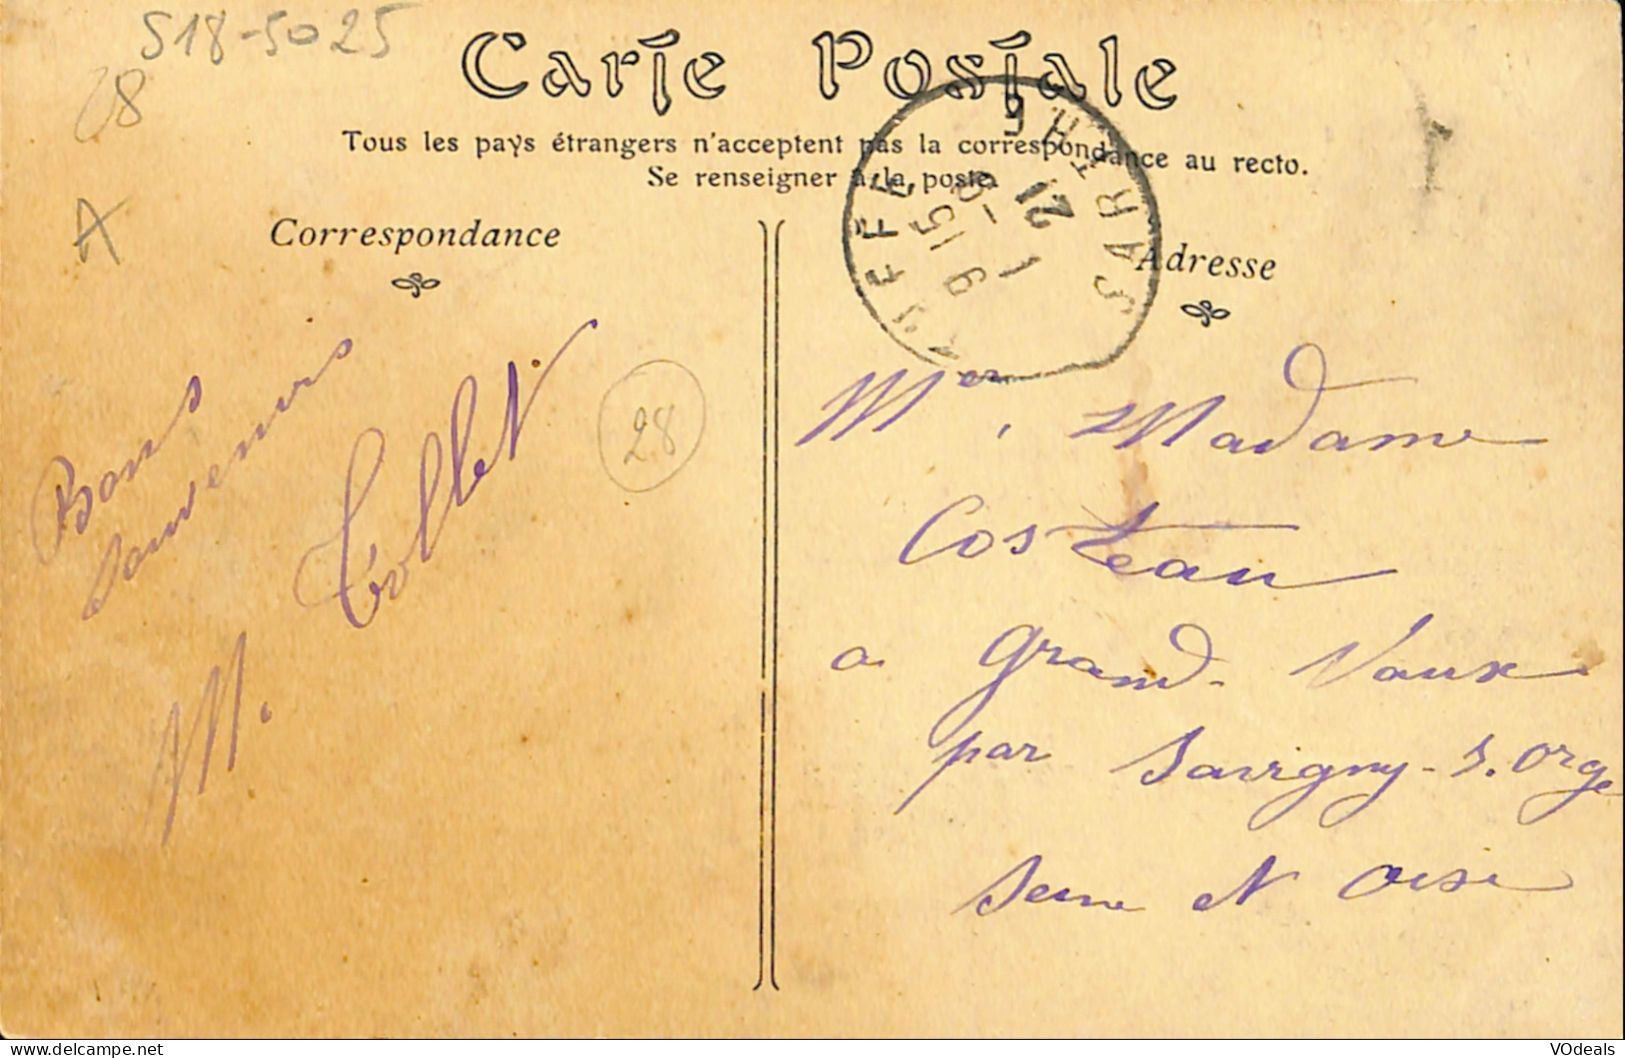 S18-5025
Carte Postale
Tous les pays étrangers n'acceptent pas la correspondance au recto.
Se renseigner à la poste.
28
A
Correspondance
Adresse
RUFFE
SARTHE
9 15
1 21
Bons
souvenirs
M. Collet
28
Mer, Madame
Costeau
a Grand-Vaux
par Savigny-s. Orge
Seine et Oise
VOdeals